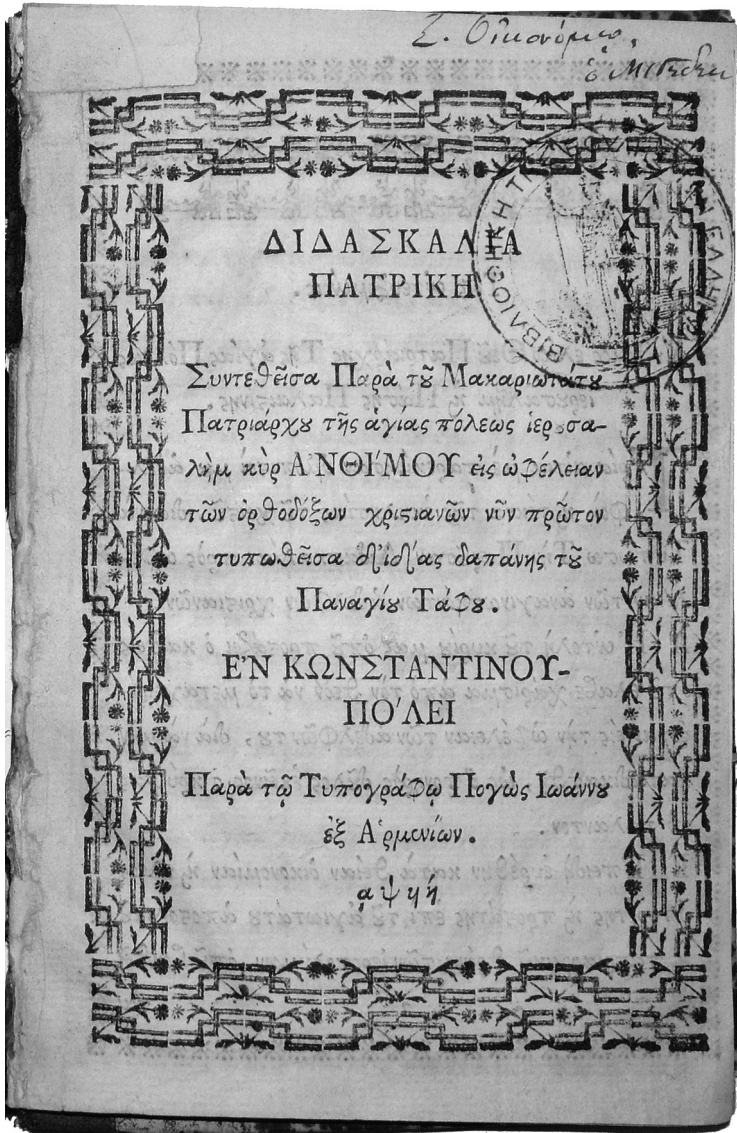 Σ. Οἰκονόμου
ΔΙΔΑΣΚΑΛΙΑ
ΠΑΤΡΙΚΗ
Συντεθεῖσα Παρὰ τȣ͂ Μακαριωτάτȣ
Πατριάρχȣ τῆς ἁγίας πόλεως ἱερȣσα-
λὴμ κὺρ Α᾿ΝΘΙ´ΜΟΥ εἰς ὠφέλειαν
τῶν ὀρθοδόξων χριϛιανῶν νῦν πρῶτον
τυπωθεῖσα δι᾿ ἰδίας δαπάνης τȣ͂
Παναγίȣ Τάφȣ.
Ε᾿Ν ΚΩΝΣΤΑΝΤΙΝΟΥ-
ΠΟ´ΛΕΙ
Παρὰ τῷ Τυπογράφῳ Πογὼς Ἰωάννȣ
ἐξ Ἀρμενίων.
αψϟή
ΒΙΒΛΙΟΘΗΚΗ ΤΗΣ